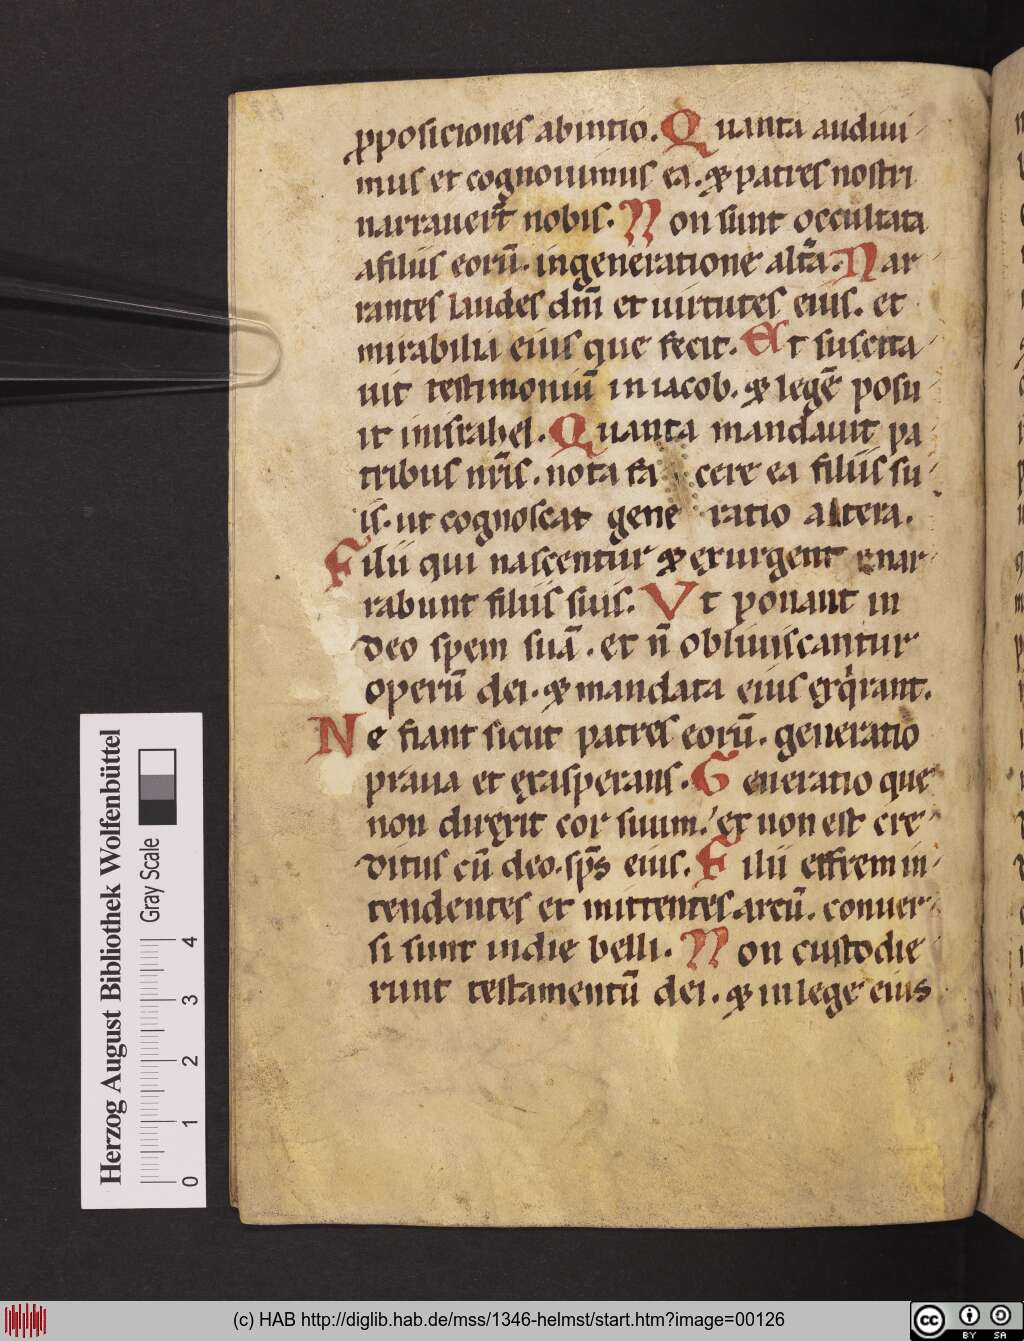 ꝓposiciones abinitio. Quanta audiui
mus et cognouimus ea. ⁊ patres nostri
narrauer̄t nobis. Non sunt occultata
afiliis eorū. ingeneratione alt̄a. Nar
rantes laudes dn̄i et uirtutes eius. et
mirabilia eius que fecit. Et suscita
uit testimoniū in iacob. ⁊ legē posu
it inisrahel. Quanta mandauit pa
tribus nr̄is. nota fa cere ea filiis su
is. ut cognoscat gene ratio altera.
Filii qui nascentur ⁊ exurgent enar
rabunt filiis suis. Vt ponant in
deo spem suā. et n̄ obliuiscantur
operū dei. ⁊ mandata eius exq̇rant.
Ne fiant sicut patres eorū. generatio
praua et exasperans. Generatio que
non direxit cor suum. et non est cre
ditus cū deo. sp̄s eius. Filii effrem in
tendentes et mittentes arcū. conuer
si sunt indie belli. Non custodie
runt testamentū dei. ⁊ inlege eius
Herzog August Bibliothek Wolfenbüttel
Gray Scale
0 1 2 3 4
(c) HAB http://diglib.hab.de/mss/1346-helmst/start.htm?image=00126
cc BY SA